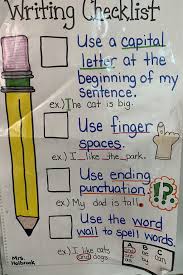 Writing Checklist
Use a capital
letter at the
beginning of my
sentence.
ex.) The cat is big.
Use finger
spaces.
ex.) I like the park.
Use ending
punctuation.
!?.
ex.) My dad is tall.
Use the word
wall to spell words.
ex.) I like cats
and dogs.
Mrs.
Holbrook